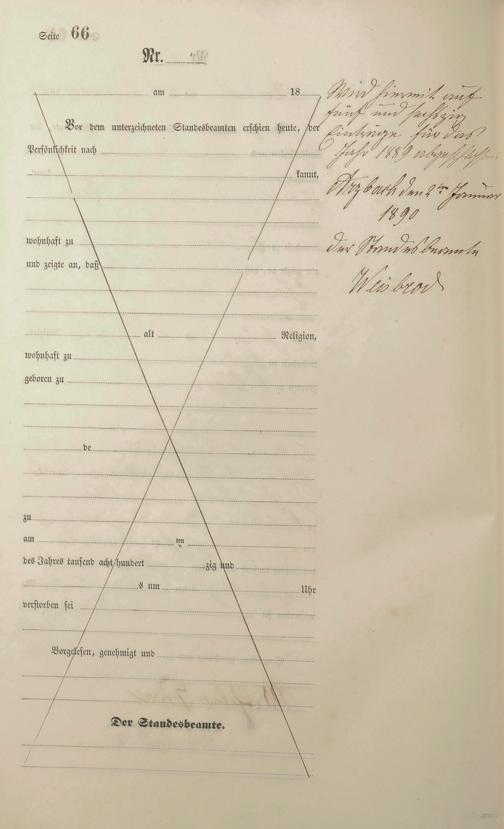 Seite 66
Nr.
am 18
Vor dem unterzeichneten Standesbeamten erschien heute, der
Persönlichkeit nach
kannt,
wohnhaft zu
und zeigte an, daß
alt Religion,
wohnhaft zu
geboren zu
de
zu
am ten
des Jahres tausend acht hundert zig und
s um Uhr
verstorben sei
Vorgelesen, genehmigt und
Der Standesbeamte.
Wird hiermit auf
fünf und sechzig
Einträge für das
Jahr 1889 abgeschlossen
Arzbach den 2ten Januar
1890
der Standesbeamte
Weisbrod